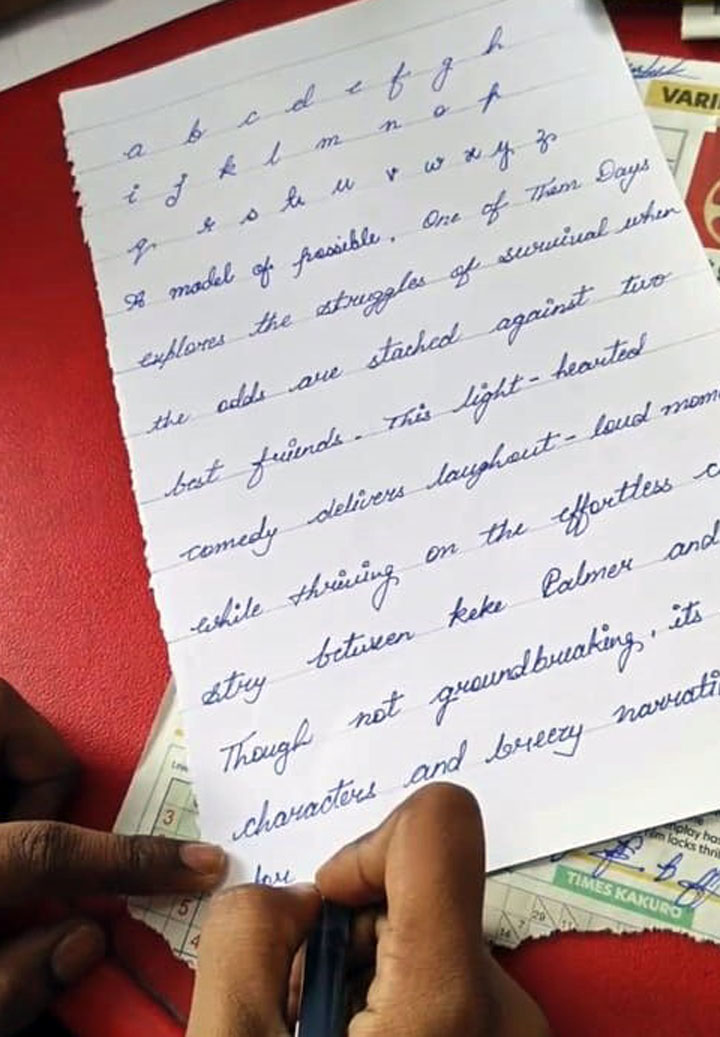 a b c d e f g h
i j k l m n o p
q r s t u v w x y z
A model of possible. One of Them Days
explores the struggles of survival when
the odds are stacked against two
best friends. This light-hearted
comedy delivers laughout-loud mom
while thriving on the effortless c
stry between keke Palmer and
Though not groundbreaking, its
characters and breezy narrati
for
VARI
TIMES KAKURO